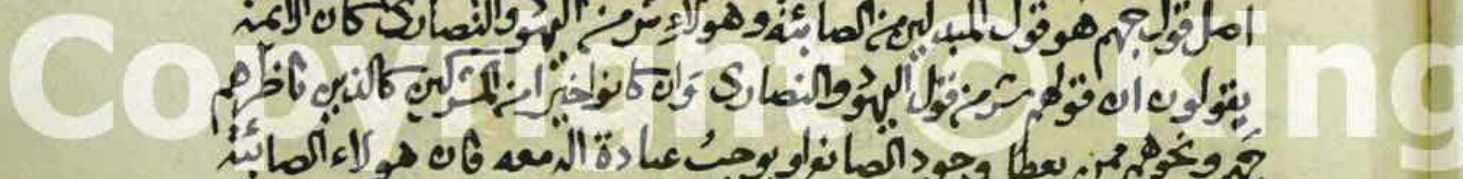 اصل قول جهم هو قول المبدلين من الصابئة وهولاء شر من اليهود والنصارى كان الائمة
يقولون ان قولهم شر من قول اليهود والنصارى وان كانوا خيرا من المشركين كالذين ناظرهم
جهم ونحوهم ممن يعطل وجود الصانع او يوجب عبادة اله معه فان هولاء الصابئة
Copyright © King